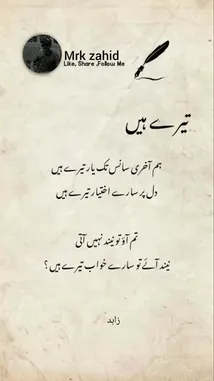 Mrk zahid
Like, Share ,Follow Me
تیرے ہیں
ہم آخری سانس تک یار تیرے ہیں
دل پر سارے اختیار تیرے ہیں
تم آؤ تو نیند نہیں آتی
نیند آئے تو سارے خواب تیرے ہیں ؟
زاہد